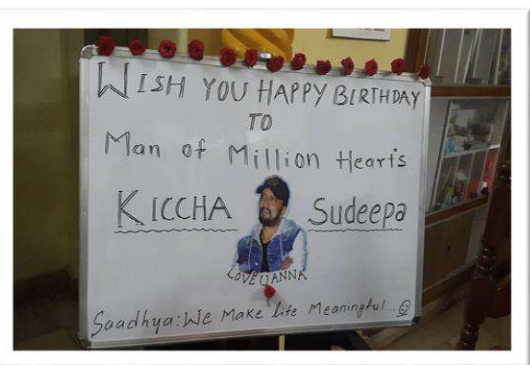 WISH YOU HAPPY BIRTHDAY
TO
Man of Million Heart's
KICCHA Sudeepa
LOVE U ANNA
Saadhya: We Make Life Meaningful...